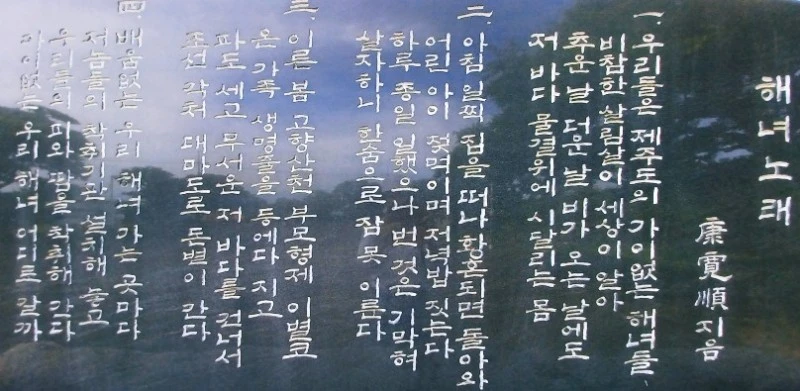 해녀노래
康寬順 지음
一. 우리들은 제주도의 가이없는 해녀들
비참한 살림살이 세상이 알아
추운 날 더운 날 비가 오는 날에도
저 바다 물결위에 시달리는 몸
二. 아침 일찍 집을 떠나 황혼되면 돌아와
어린 아이 젖먹이며 저녁밥 짓는다
하루 종일 일했으나 번 것은 기막혀
살자하니 한숨으로 잠 못 이룬다
三. 이른 봄 고향산천 부모형제 이별코
온 가족 생명줄을 등에다 지고
파도 세고 무서운 저 바다를 건너서
조선 각처 대마도로 돈벌이 간다
四. 배움없는 우리 해녀 가는 곳마다
저놈들의 착취기관 설치해 놓고
우리들의 피와 땀을 착취해 간다
가이없는 우리 해녀 어디로 갈까